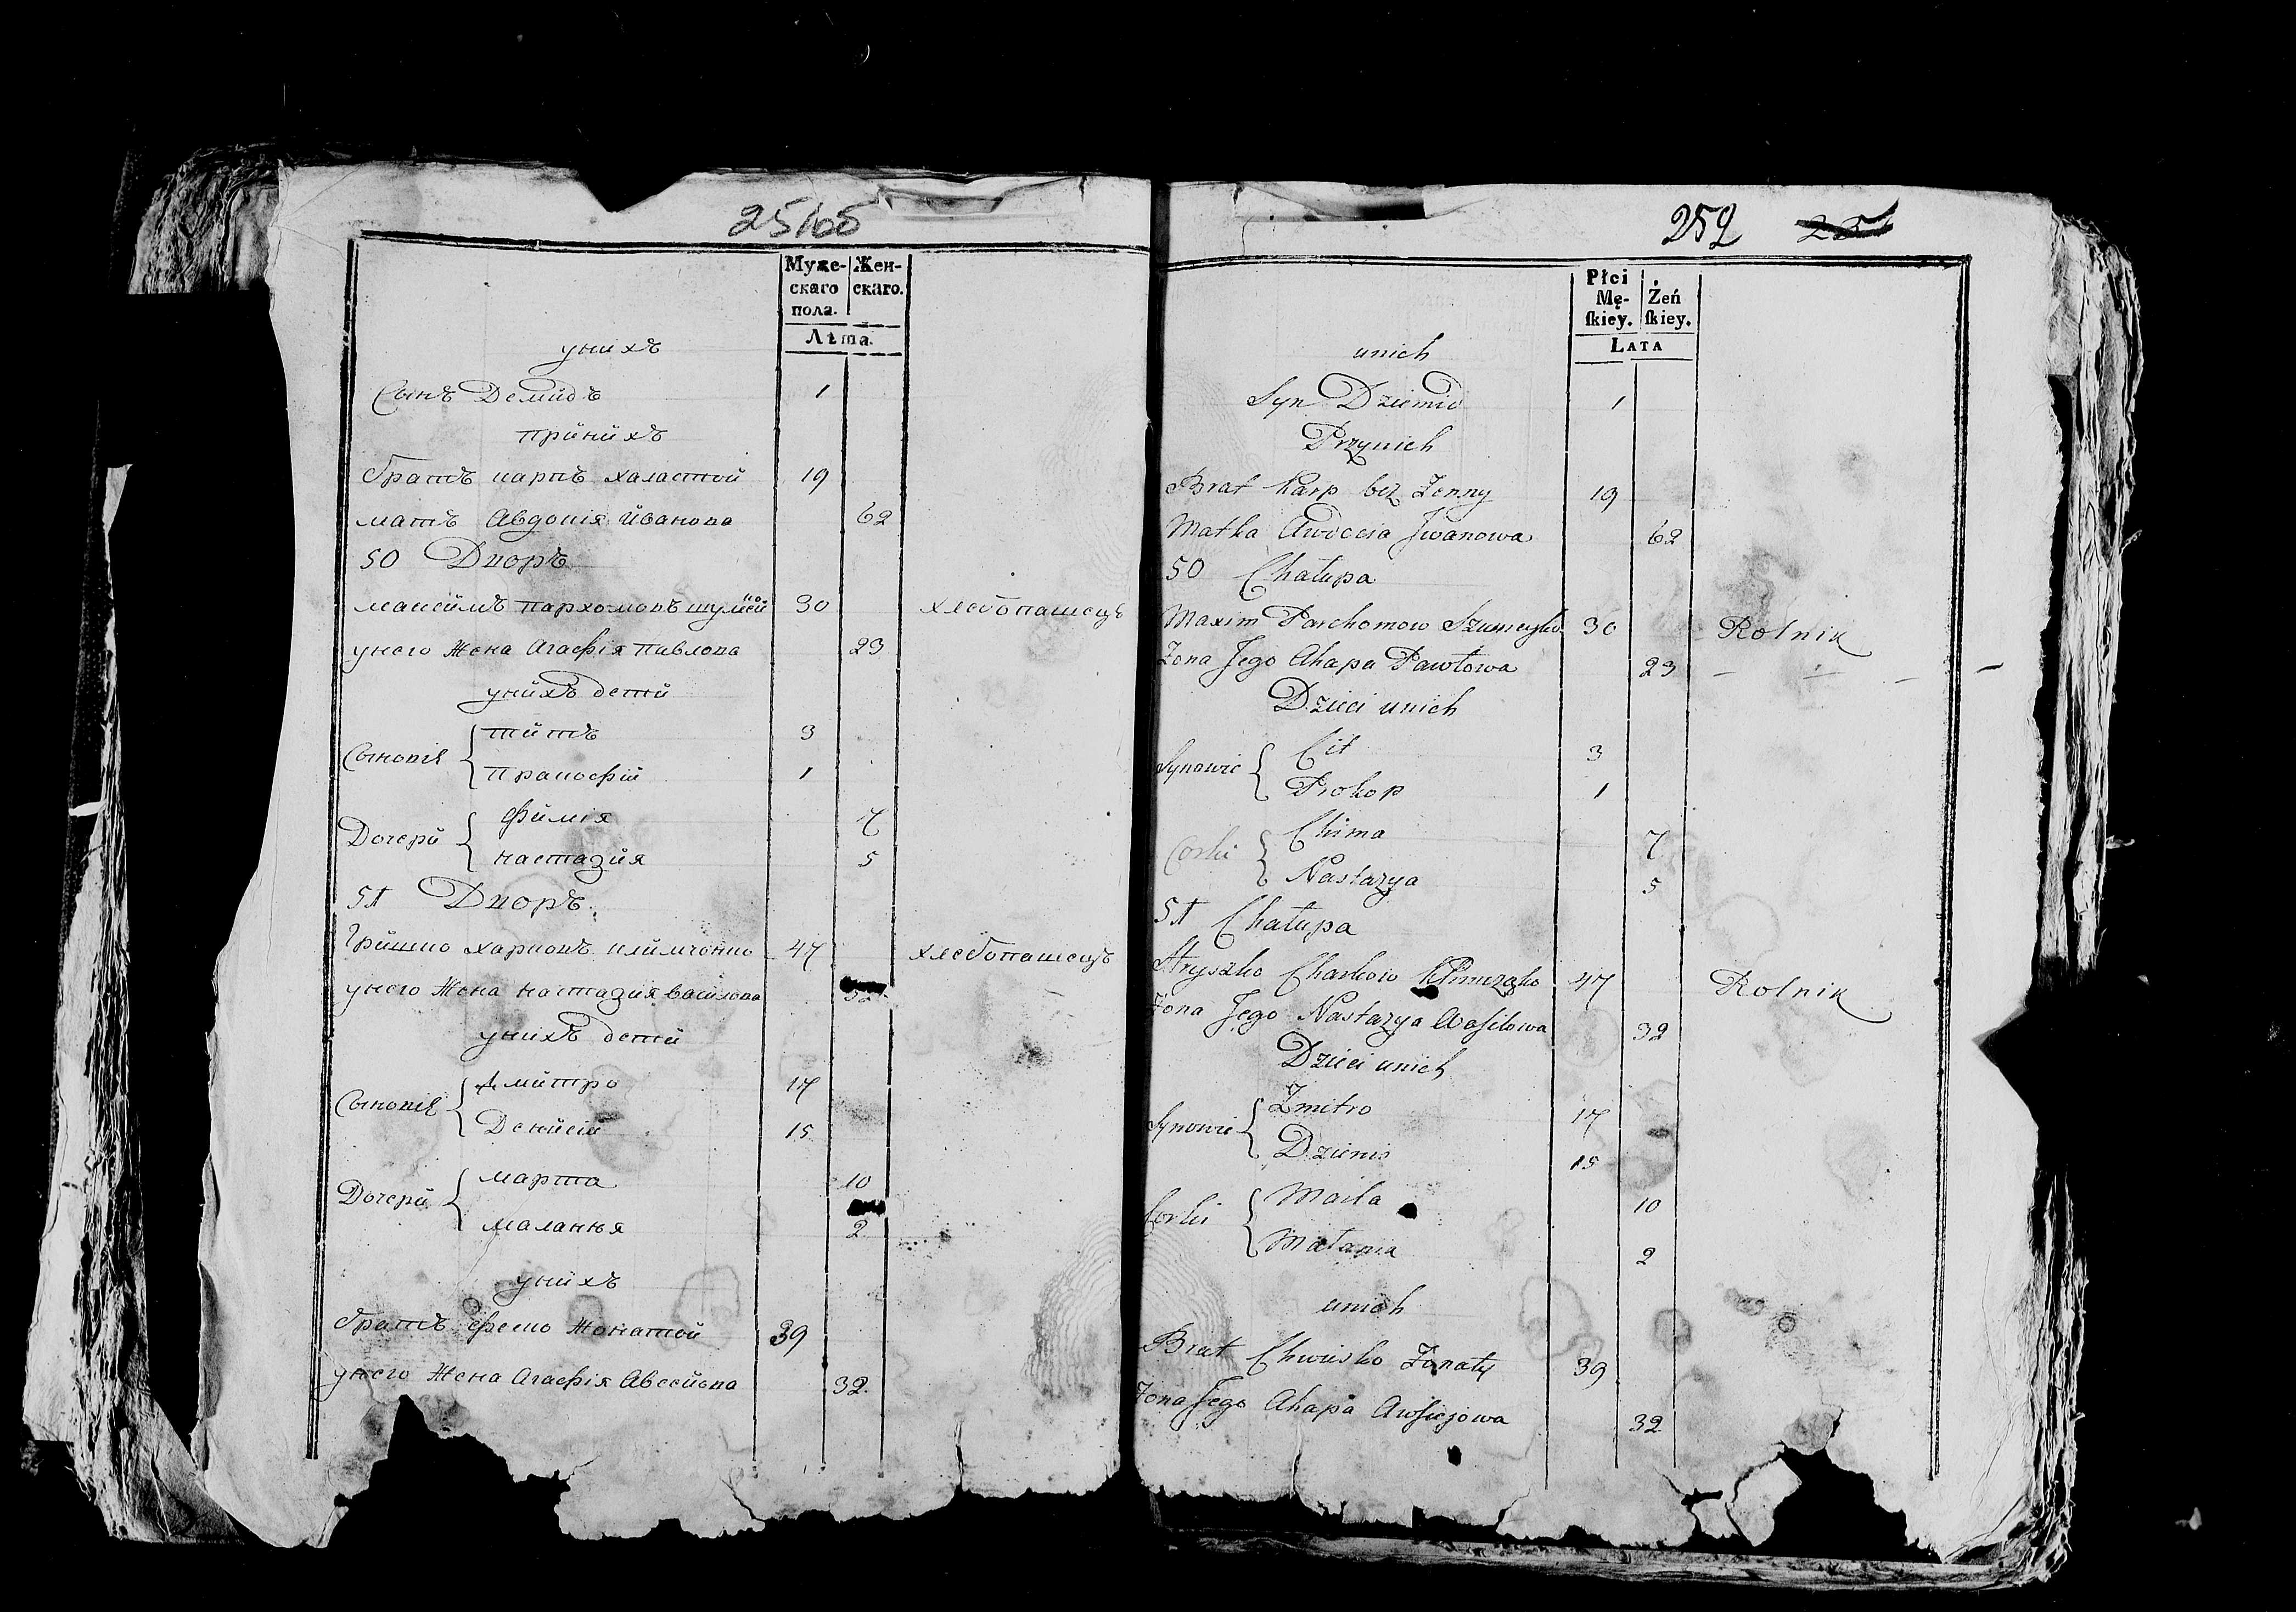 251об
Муже-
скаго
пола.
Жен-
скаго.
Лѣта.
унихъ
Сынъ Демидъ 1
принихъ
братъ карпъ халастой 19
матъ Авдотія йванова 62
50 Дворъ
максимъ пархомовъ шумейко 30 хлебопашецъ
унего Жена Агафія павлова 23
унихъ дети
Сыновія
титъ 3
пракофій 1
Дочери
фимія 7
настазия 5
51 Дворъ
Гришко харковъ климченко 47 хлебопашецъ
унего Жена настазия васплова 32
унихъ дети
Сыновія
дмитро 17
Денисій 15
Дочери
марта 10
маланья 2
унихъ
братъ феско Жонатой 39
унего Жена Агафія Авсейова 32
252
Płci
Mę-
ſkiey.
Żeń
ſkiey.
LATA
unich
Syn Dziemid 1
Przynich
Brat Karp bez Zonny 19
Matka Awdocia Jwanowa 62
50 Chałupa
Maxim Parchomow Szumeyko 30 Rolnik
Zona Jego Ahapa Pawłowa 23
Dzieci unich
Synowie
Cit 3
Prokop 1
Corki
Chima 7
Nastazya 5
51 Chałupa
Hryszko Charkow Klimczęko 47 Rolnik
Zona Jego Nastazya Wasilowa 32
Dzieci unich
Synowie
Zmitro 17
Dzienis 15
Corki
Marta 10
Małania 2
unich
Brat Chwiesko Zonaty 39
Zona Jego Ahapa Awsiejowa 32